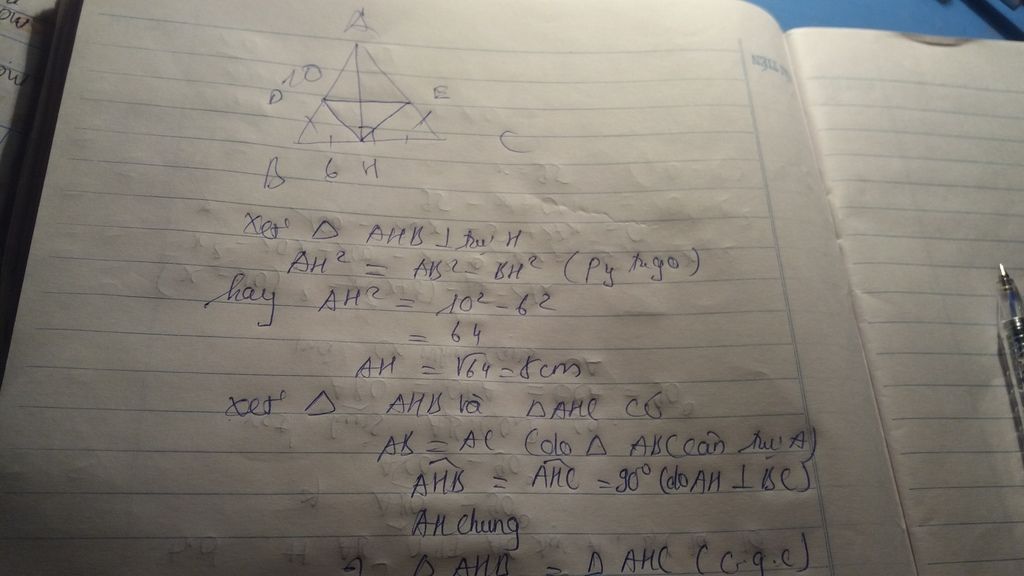 A
10
D E
B 6 H C
xét Δ AHB ⊥ tại H
AH² = AB² - BH² (Py tago)
hay AH² = 10² - 6²
= 64
AH = √64 = 8cm
xét Δ AHB và ΔAHC có
AB = AC (do Δ ABC cân tại A)
AHB = AHC = 90° (do AH ⊥ BC)
AH chung
=> Δ AHB = Δ AHC (c.g.c)